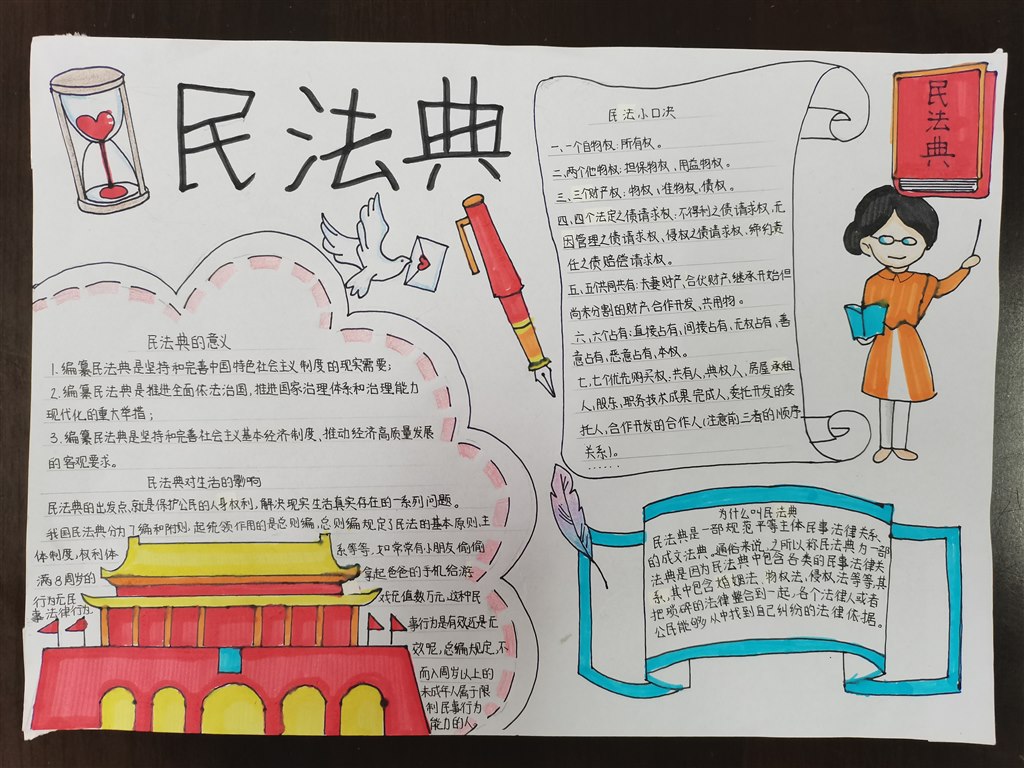 民法典
民法典
民法典的意义
1.编纂民法典是坚持和完善中国特色社会主义制度的现实需要;
2.编纂民法典是推进全面依法治国,推进国家治理体系和治理能力
现代化的重大举措;
3.编纂民法典是坚持和完善社会主义基本经济制度、推动经济高质量发展
的客观要求。
民法典对生活的影响
民法典的出发点,就是保护公民的人身权利,解决现实生活真实存在的一系列问题。
我国民法典分为7编和附则,起统领作用的是总则编,总则编规定了民法的基本原则,主
体制度,权利体 系等等,如常常有小朋友偷偷
满8周岁的 拿起爸爸的手机给游
行为无民 戏充值数万元,这种民
事法律行为 事行为是有效还是无
效呢,总编规定,不
而入周岁以上的
未成年人属于限
制民事行为
能力的人。
民法小口决
一、一个自物权:所有权。
二、两个他物权:担保物权、用益物权。
三、三个财产权:物权、准物权,债权。
四、四个法定之债请求权:不得利之债请求权,无
因管理之债请求权、侵权之债请求权、缔约责
任之债赔偿请求权。
五、五个共同共有:夫妻财产,合伙财产,继承开始但
尚未分割的财产,合作开发、共用物。
六、六个占有:直接占有,间接占有,无权占有,善
意占有,恶意占有,本权。
七、七个优先购买权:共有人,典权人,房屋承租
人,股东、职务技术成果完成人,委托开发的委
托人,合作开发的合作人(注意前三者的顺序
关系)。
......
为什么叫民法典
民法典是一部规范平等主体民事法律关系、
的成文法典。通俗来说,之所以称民法典为一部
法典是因为民法典中包含各类的民事法律关
系,其中包含婚姻法,物权法,侵权法等等,其
把琐碎的法律整合到一起,各个法律人或者
公民能够从中找到自己纠纷的法律依据。